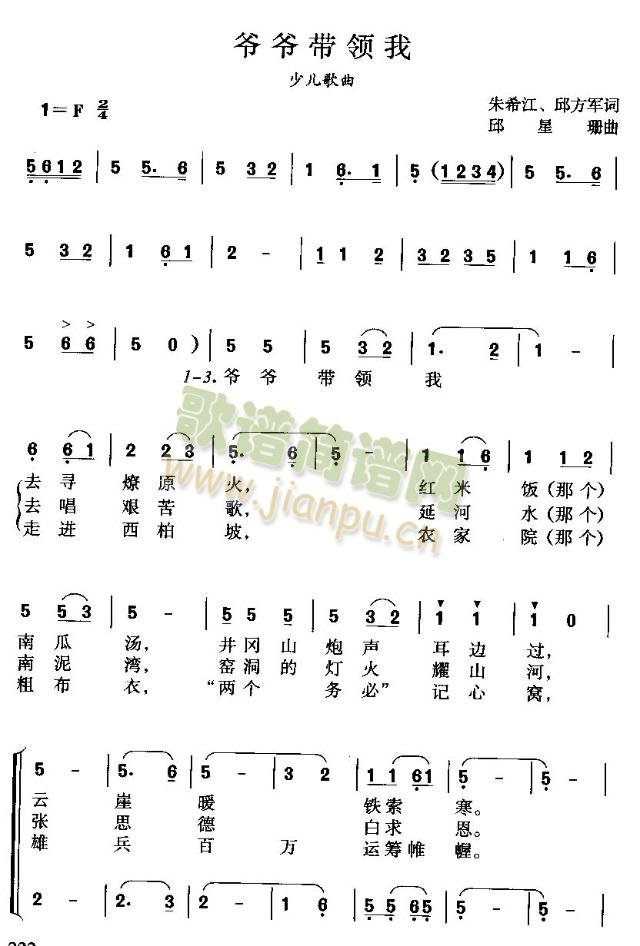 爷爷带领我
少儿歌曲
1=F 2/4
朱希江、邱方军词
邱星珊曲
5612 | 5 5.6 | 5 32 | 1 6.1 | 5 (1234) | 5 5.6
5 32 | 1 61 | 2 - | 11 2 | 3235 | 1 16
5 66 | 5 0) | 5 5 | 5 32 | 1. 2 | 1 -
1-3.爷爷 带领 我
6 61 | 2 23 | 5. 6 | 5 - | 1 16 | 1 12
去寻燎原火,红米饭(那个)
去唱艰苦歌,延河水(那个)
走进西柏坡,农家院(那个)
5 53 | 5 - | 55 5 | 5 32 | 1 1 | 1 0
南瓜汤,井冈山炮声耳边过,
南泥湾,窑洞的灯火耀山河,
粗布衣,“两个务必”记心窝,
5 - | 5. 6 | 5 - | 3 2 | 11 61 | 5 - | 5 -
云崖暖铁索寒。
张思德白求恩。
雄兵百万运筹帷幄。
2 - | 2. 3 | 2 - | 1 6 | 55 65 | 5 - | 5 -
www.jianpu.cn
歌谱简谱网